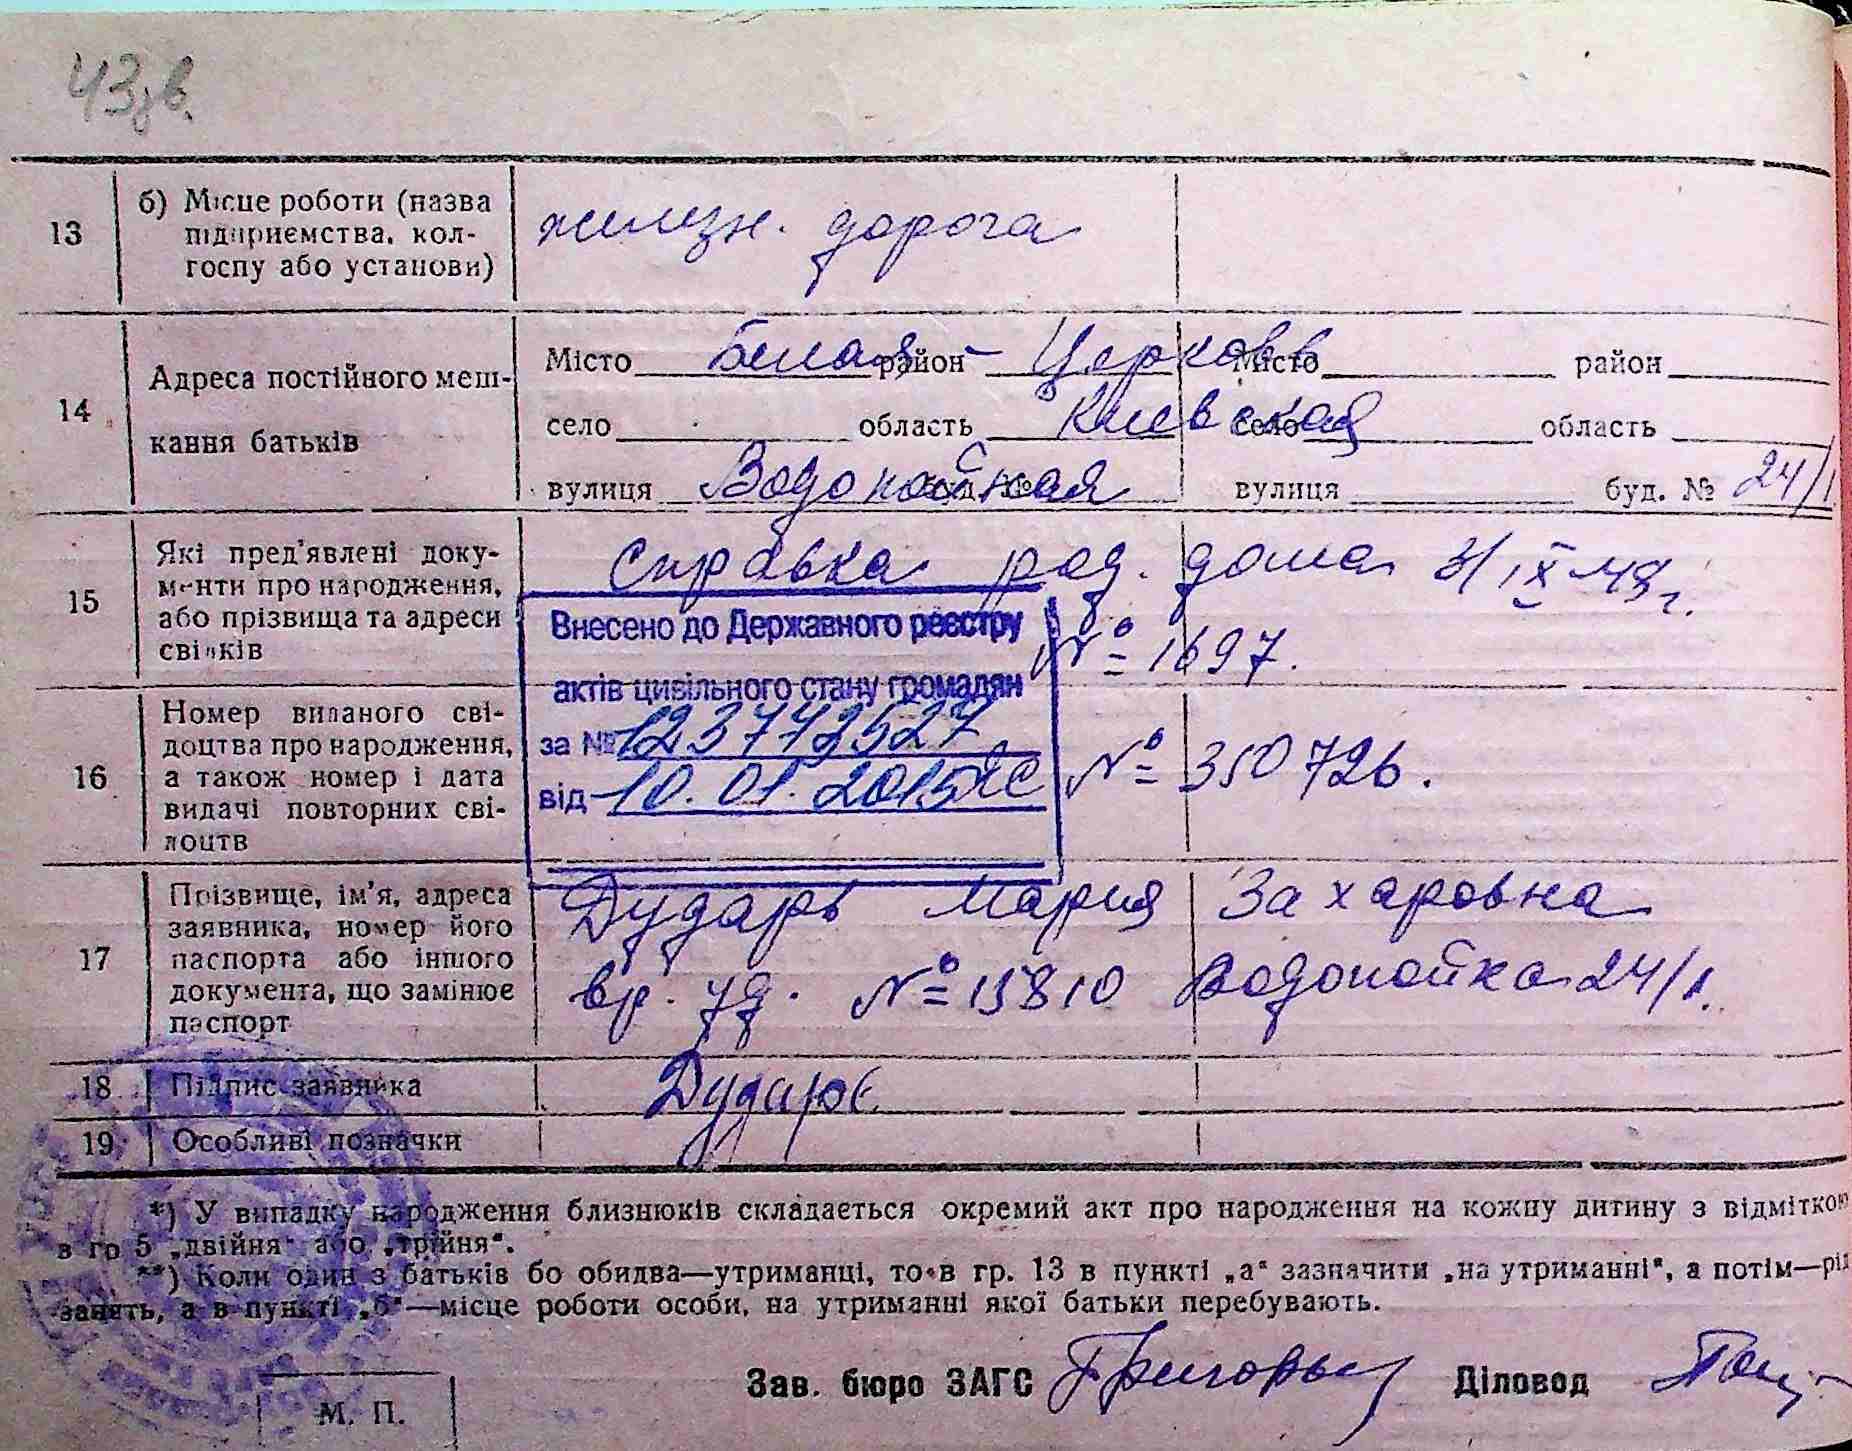 43зв.
13
б) Місце роботи (назва
підприємства, кол-
госпу або установи)
железн. дорога
14
Адреса постійного меш-
кання батьків
Місто Белая район - Церковь Місто район
село область Киевская село область
вулиця Водопойная буд. № вулиця буд. № 24/1
15
Які пред'явлені доку-
менти про народження,
або прізвища та адреси
свідків
Справка род. дома 3/IX-49 г.
№ 1697.
Внесено до Державного реєстру
актів цивільного стану громадян
за №
від 10.01.2015
16
Номер виданого сві-
доцтва про народження,
а також номер і дата
видачі повторних сві-
доцтв
№ 350726.
17
Прізвище, ім'я, адреса
заявника, номер його
паспорта або іншого
документа, що замінює
паспорт
Дударь Мария Захаровна
вр. уд. № 15810 Водопойна 24/1.
18
Підпис заявника
19
Особливі позначки
*) У випадку народження близнюків складається окремий акт про народження на кожну дитину з відміткою
в гр 5 „двійня" або „трійня".
**) Коли один з батьків бо обидва—утриманці, то в гр. 13 в пункті „а" зазначити „на утриманні", а потім—рід
занять, а в пункті „б"—місце роботи особи, на утриманні якої батьки перебувають.
Зав. бюро ЗАГС Діловод
М. П.